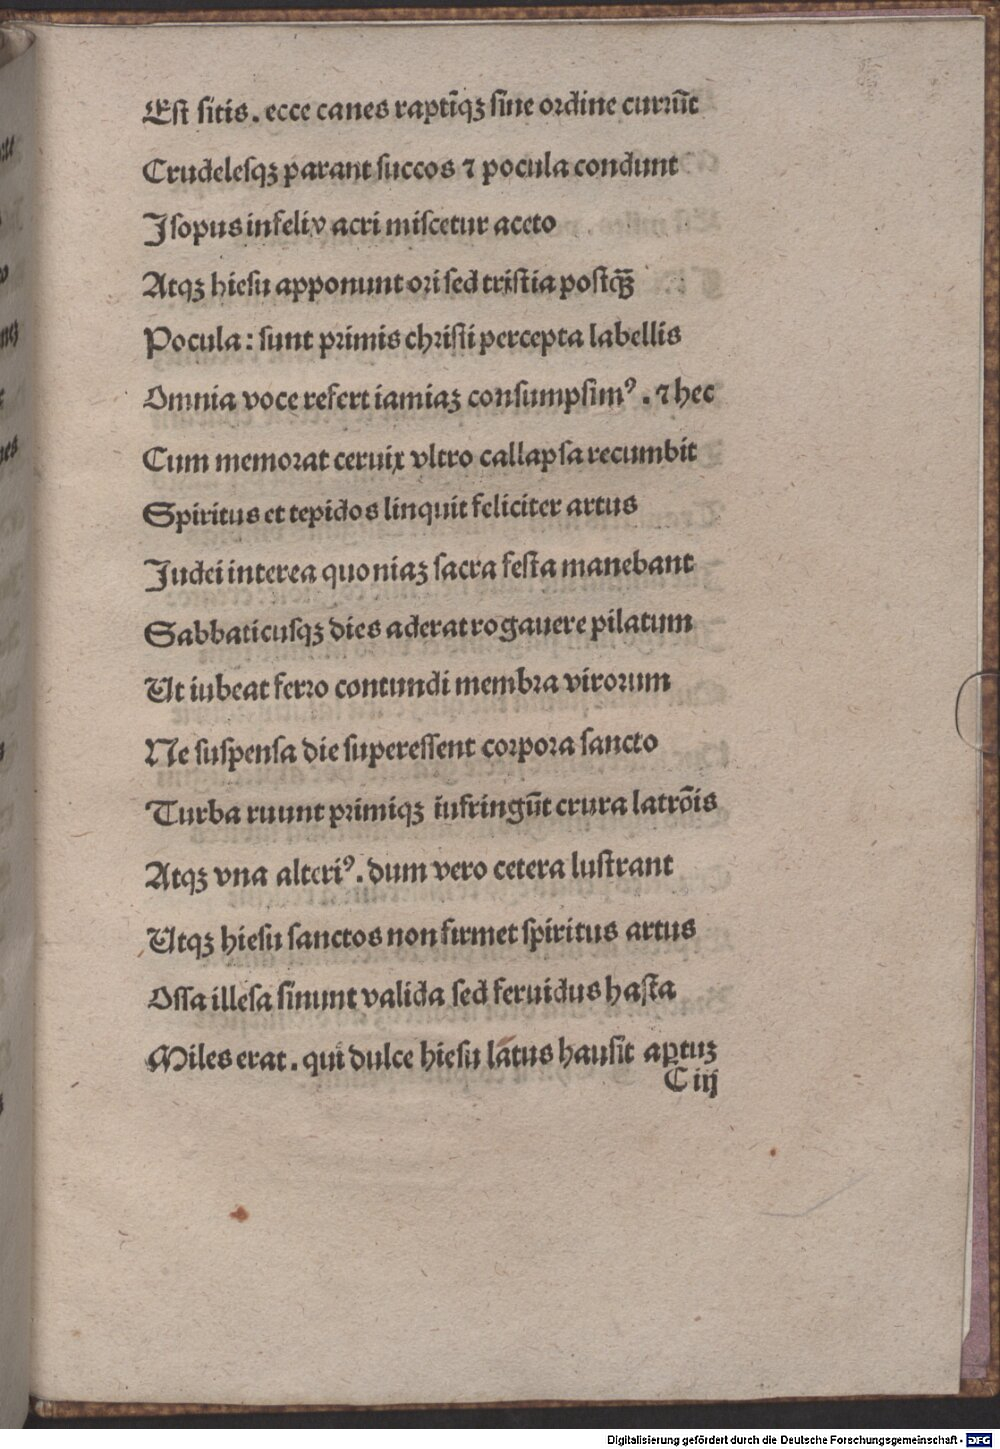 Eſt ſitis. ecce canes raptĩqꝫ ſine ordine currũt
Crudeleſqꝫ parant ſuccos ⁊ pocula condunt
Iſopus infelix acri miſcetur aceto
Atqꝫ hieſu apponunt ori ſed triſtia poſtq̃ꝫ
Pocula: ſunt primis chriſti percepta labellis
Omnia voce refert iamiaꝫ conſumpſimꝰ. ⁊ hec
Cum memorat ceruix vltro callapſa recumbit
Spiritus et tepidos linquit feliciter artus
Iudei interea quoniaꝫ ſacra feſta manebant
Sabbaticuſqꝫ dies aderat rogauere pilatum
Ut iubeat ferro contundi membra virorum
Ne ſuſpenſa die ſupereſſent corpora ſancto
Turba ruunt primiqꝫ iufringũt crura latrõis
Atqꝫ vna alteriꝰ. dum vero cetera luſtrant
Utqꝫ hieſu ſanctos non firmet ſpiritus artus
Oſſa illeſa ſinunt valida ſed feruidus haſta
Miles erat. qui dulce hieſu latus hauſit aꝑtuꝫ
C iij
Digitalisierung gefördert durch die Deutsche Forschungsgemeinschaft - DFG